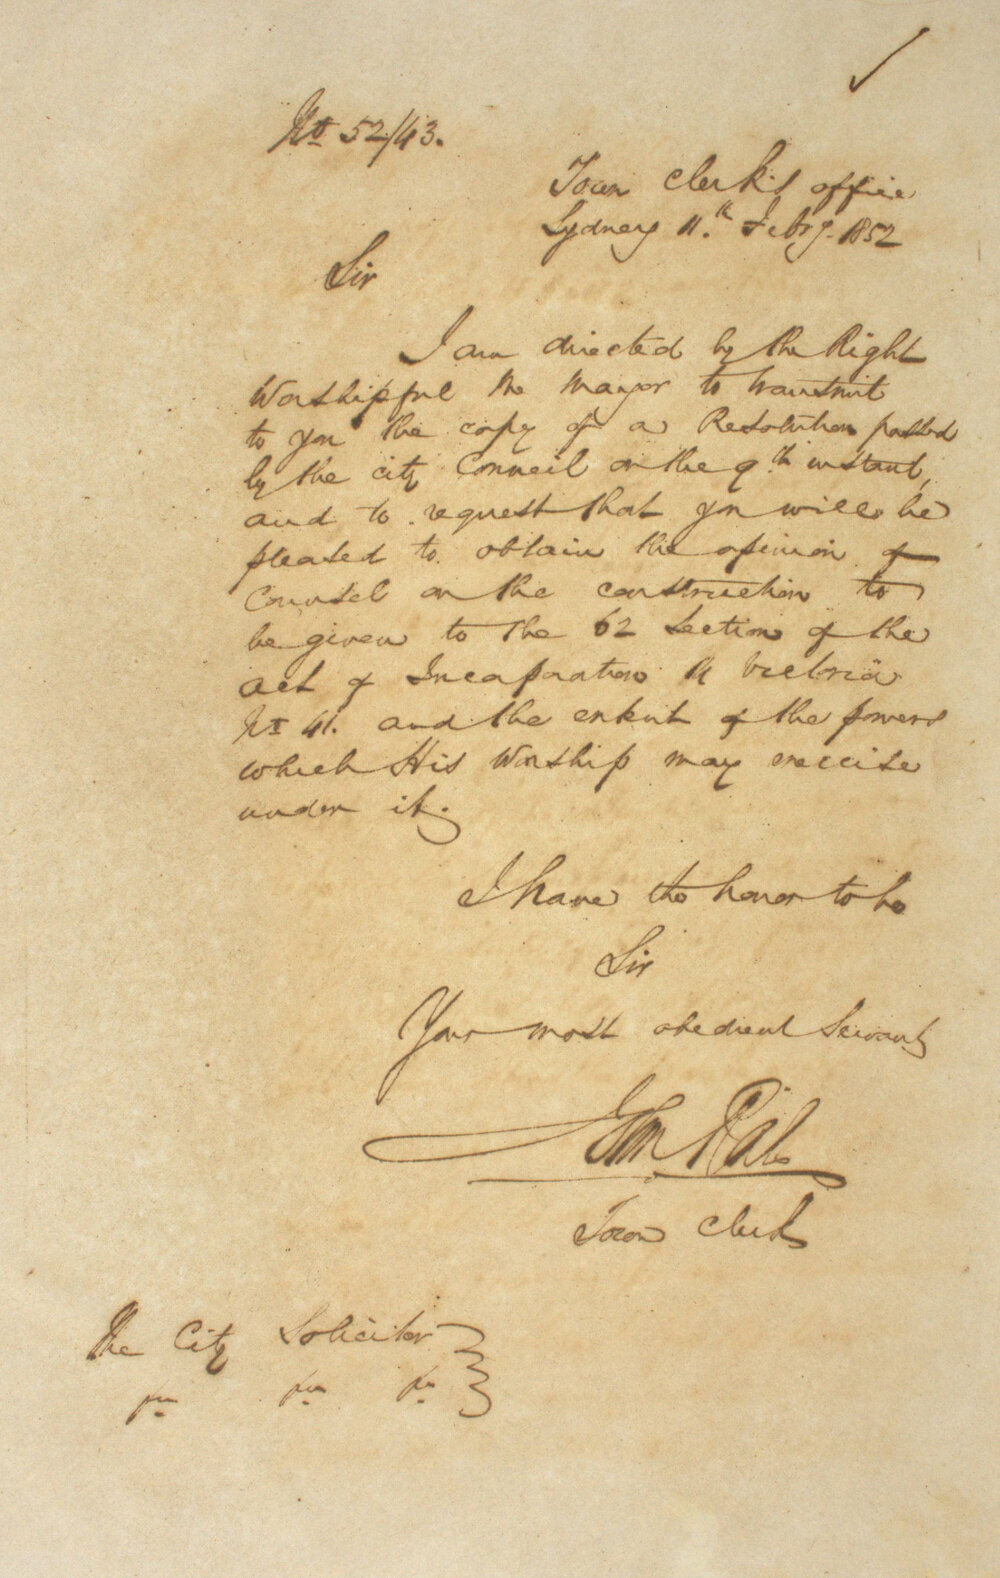 No 52/43.
Town Clerk's office
Sydney 11.th Feby. 1852
Sir
I am directed by the Right
Worshipful the Mayor to transmit
to you the copy of a Resolution passed
by the city Council on the 9th instant,
and to request that you will be
pleased to obtain the opinion of
Counsel on the construction to
be given to the 62 Section of the
Act of Incorporation 14 Victoria
No 41. and the extent of the powers
which His Worship may exercise
under it.
I have the honor to be
Sir
Your most obedient Servant
Town Clerk
The City Solicitor